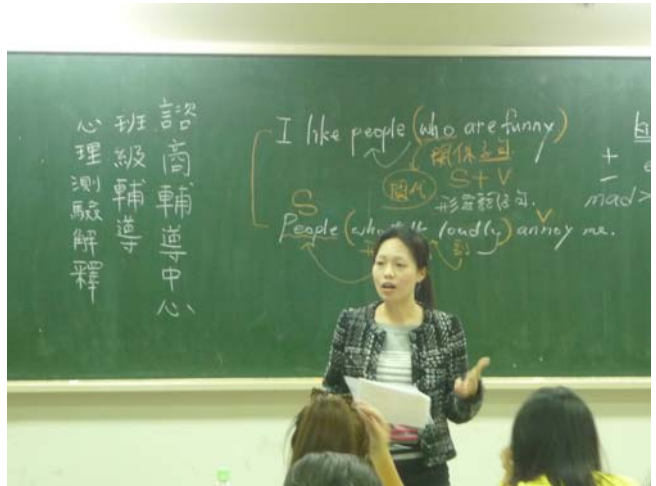 諮商輔導中心
班級輔導
心理測驗解釋
I like people (who are funny)
關係子句
關代
S+V
形容詞子句.
S
V
People (who talk loudly) annoy me.
副
+
-
mad>